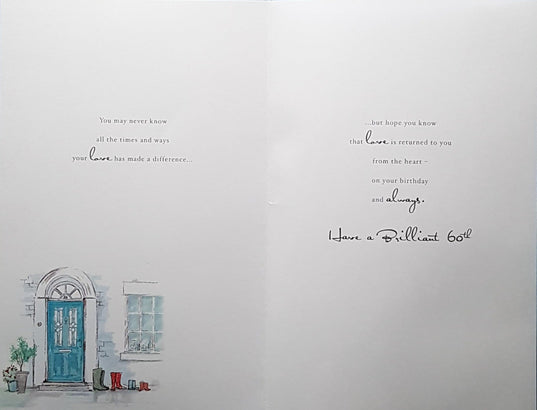 You may never know
all the times and ways
your love has made a difference...
...but hope you know
that love is returned to you
from the heart –
on your birthday
and always.
Have a Brilliant 60th